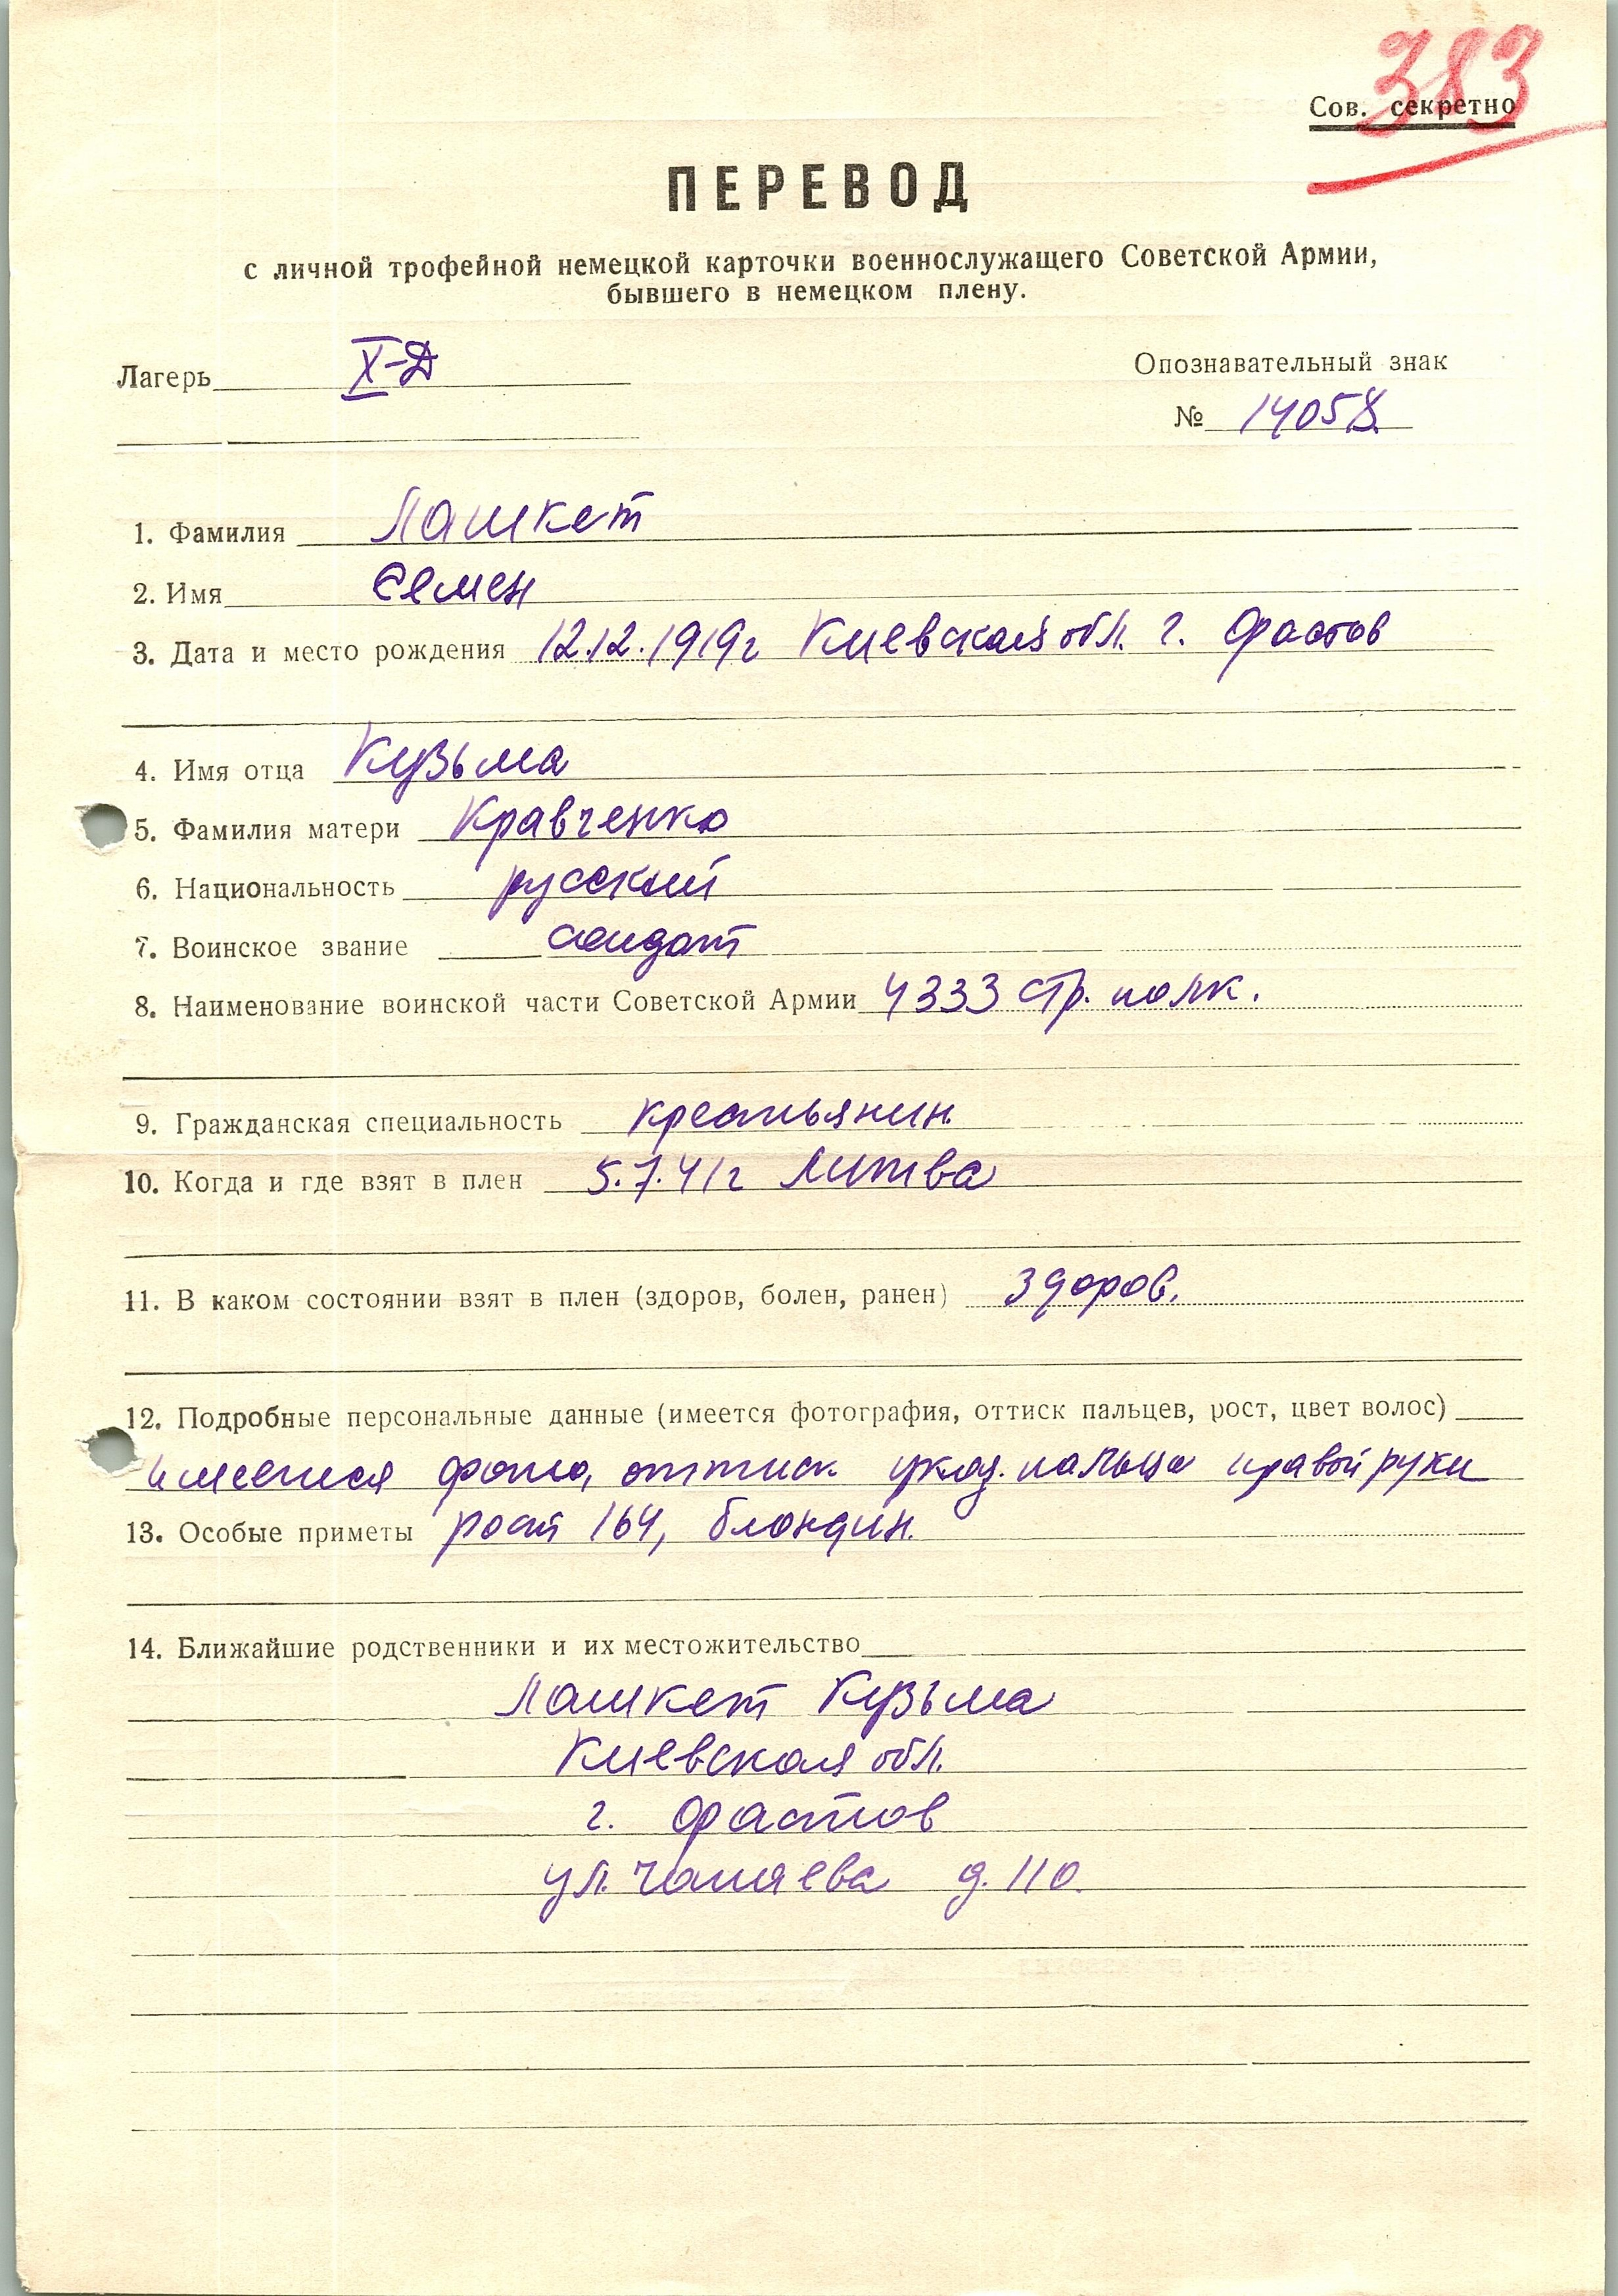 383
Сов. секретно
ПЕРЕВОД
с личной трофейной немецкой карточки военнослужащего Советской Армии,
бывшего в немецком плену.
Лагерь X-Д
Опознавательный знак
№ 14058
1. Фамилия Лашкет
2. Имя Семен
3. Дата и место рождения 12.12.1919г Киевская обл. г. Фастов
4. Имя отца Кузьма
5. Фамилия матери Кравченко
6. Национальность русский
7. Воинское звание солдат
8. Наименование воинской части Советской Армии 4333 стр. полк.
9. Гражданская специальность крестьянин.
10. Когда и где взят в плен 5.7.41г Литва
11. В каком состоянии взят в плен (здоров, болен, ранен) здоров.
12. Подробные персональные данные (имеется фотография, оттиск пальцев, рост, цвет волос)
имеется фото, оттиск указ. пальца правой руки
13. Особые приметы рост 164, блондин.
14. Ближайшие родственники и их местожительство
Лашкет Кузьма
Киевская обл.
г. Фастов
ул. Чапаева д. 110.